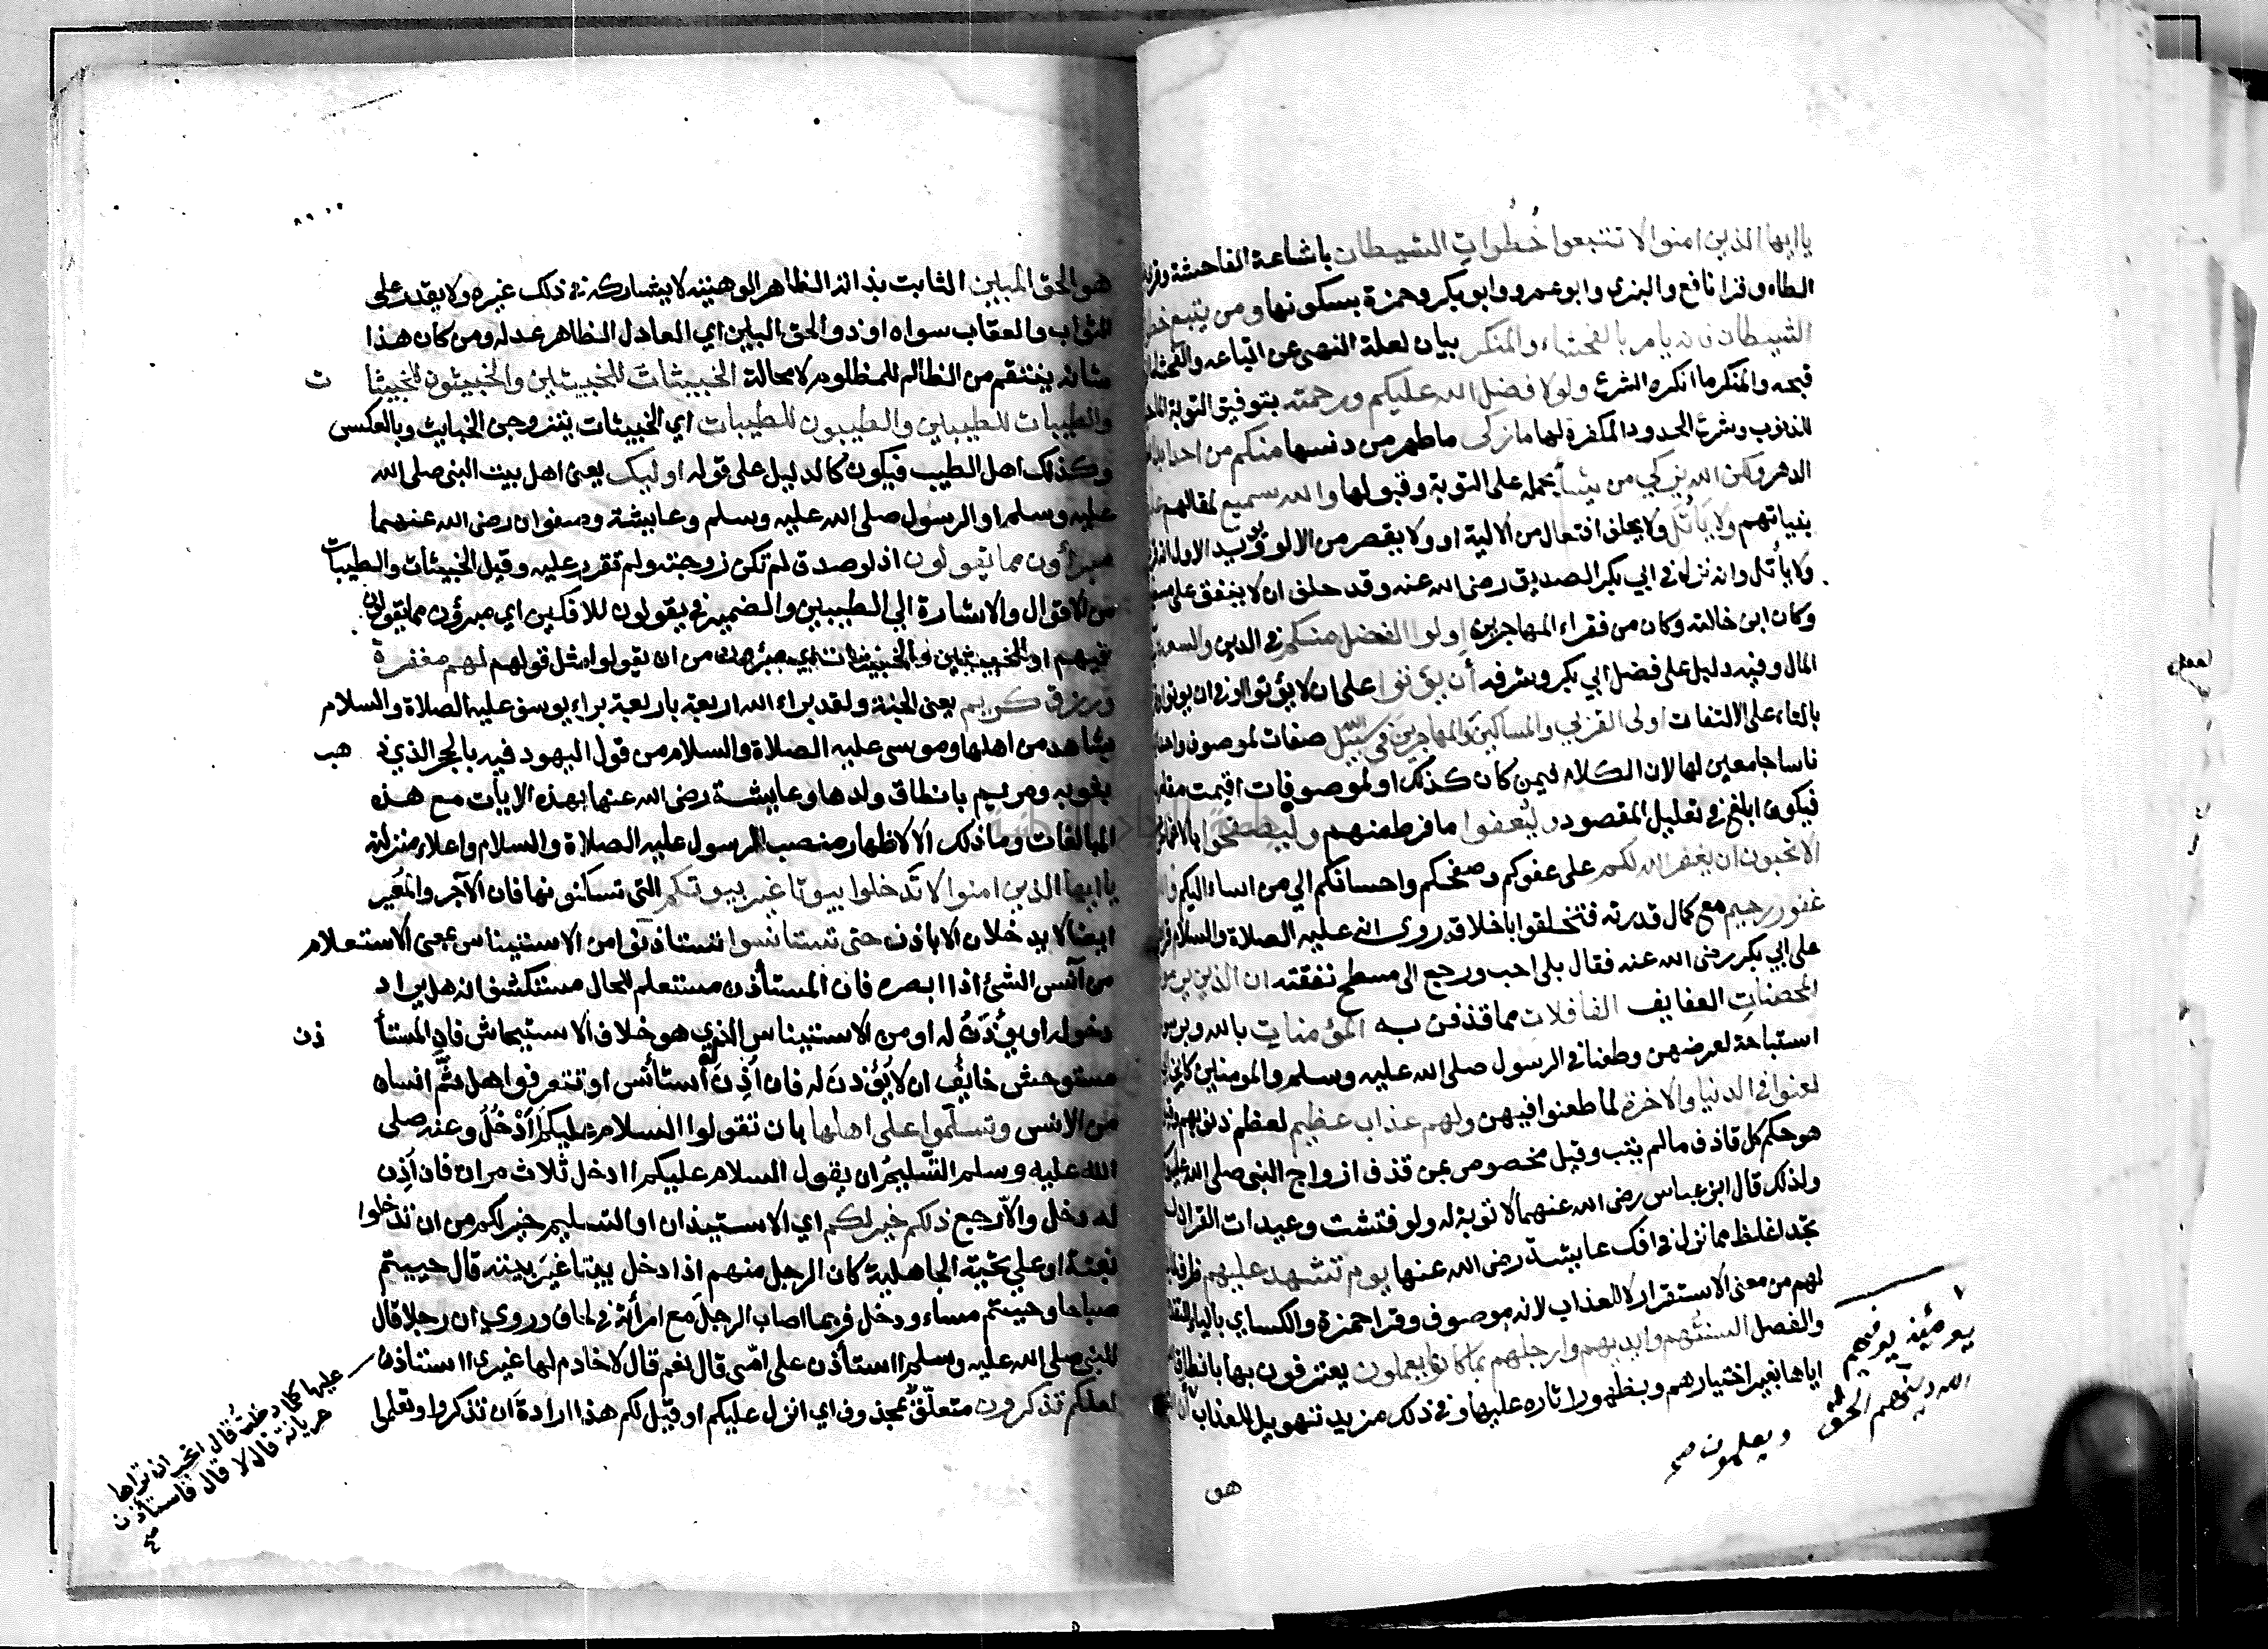 يا ايها الذين امنوا لا تتبعوا خُطُواتِ الشيطان باشاعة الفاحشة وقرئ
الطاء وقرا نافع والبزي وابو عمرو وابو بكر وحمزة بسكونها ومن يتبع
الشيطان فانه يامر بالفحشاء والمنكر بيان لعلة النهي عن اتباعه والفحشاء
قبحه والمنكر ما انكره الشرع ولولا فضل الله عليكم ورحمته بتوفيق التوبة
للذنوب وشرع الحدود المكفرة لها ما زكى ما طهر من دنسها منكم من احد
الدهر ولكن الله يزكي من يشأ بحمله على التوبة وقبولها والله سميع لمقالهم
بنياتهم ولا يَأتَلَ ولا يحلف افتعال من الالية او ولا يقصر من الالو ويويد الاول
ولا يأتل وانه نزل في ابي بكر الصديق رضى الله عنه وقد حلف ان لا ينفق على
وكان ابن خالته وكان من فقراء المهاجرين اولوا الفضل منكم في الدين والسعة
المال وفيه دليل على فضل ابي بكر وشرفه أن يؤتوا على ان لا يؤتوا او في ان يوتوا
بالتاء على الالتفات اولى القربي والمساكينَ والمهاجرينَ في سبيل الله صفات لموصوف
ناسا جامعين لها لان الكلام فيمن كان كذلك او لموصوفات اقيمت
فيكون ابلغ في تعليل المقصود وليُعفوا ما فرط منهم وليصفحوا
الا تحبون ان يغفر الله لكم على عفوكم وصفحكم واحسانكم الي من اساء اليكم
غفور رحيم مع كمال قدرته فتخلقوا باخلاقه روى انه عليه الصلاة والسلام
على ابي بكر رضى الله عنه فقال بلى احب ورجع الى مسطح نفقته ان الذين
المحصناتِ العفايف الغافلاتِ مما قذفن به المؤمناتِ بالله
استباحة لعرضهن وطعنا في الرسول صلى الله عليه وسلم والمومنين
لعنوا في الدنيا والاخرة لما طعنوا فيهن ولهم عذاب عظيم لعظم ذنوبهم
هو حكم كل قاذف ما لم يتب وقيل مخصوص بمن قذف ازواج النبي صلى الله عليه
ولذلك قال ابن عباس رضى الله عنهما لا توبة له ولو فتشت وعيدات القران
تجد اغلظ مما نزل في افك عايشة رضى الله عنها يوم تشهد عليهم
لهم من معنى الاستقرار لا للعذاب لانه موصوف وقرا حمزة والكساي بالياء
والفصل السنتُهم وايديهم وارجلهم بما كانوا يعملون يعترفون بها
اياها بغير اختيارهم وبظهور اثاره عليها وفي ذلك مزيد تهويل للعذاب
يومئذ يوفيهم
الله دينهم الحق
ويعلمون صح
هو
هو الحق المبين الثابت بذاته الظاهر الوهيته لا يشاركه في ذلك غيره ولا يقدر على
الثواب والعقاب سواه او ذو الحق البين اي العادل الظاهر عدله ومن كان هذا
شانه ينتقم من الظالم للمظلوم لا محالة الخبيثات للخبيثين والخبيثون للخبيثا ت
والطيبات للطيبين والطيبون للطيبات اي الخبيثات يتزوجن الخبايث وبالعكس
وكذلك اهل الطيب فيكون كالدليل على قوله اوليك يعنى اهل بيت النبي صلى الله
عليه وسلم او الرسول صلى الله عليه وسلم وعايشة وصفوان رضى الله عنهما
مبرأون مما يقولون اذ لو صدق لم تكن زوجته ولم تقرر عليه وقيل الخبيثات والطيبات
من الاقوال والاشارة الي الطيبين والضمير في يقولون للافكين اي مبرؤن مما يقولون
فيهم او للخبيثين والخبيثات اي مبرؤن من ان يقولوا مثل قولهم لهم مغفرة
ورزق كريم يعنى الجنة ولقد براء الله اربعة باربعة براء يوسف عليه الصلاة والسلام
بشاهد من اهلها وموسى عليه الصلاة والسلام من قول اليهود فيه بالحجر الذي ذ هب
بثوبه ومريم بانطاق ولدها وعايشة رضى الله عنها بهذه الايات مع هذه
المبالغات وما ذلك الا لاظهار منصب الرسول عليه الصلاة والسلام واعلاء منزلته
يا ايها الذين امنوا لا تَدخلوا بيوتا غير بيوتكم التى تسكنونها فان الآجر والمُعير
ايضا لا يدخلان الا باذن حتى تستانسوا تستاذنوا من الاستيناس بمعنى الاستعلام
من آنس الشئ اذا ابصره فان المستأذن مستعلم للحال مستكشف انه هل يراد
دخوله او يؤذنُ له او من الاستيناس الذي هو خلاف الاستيحاش فان المستأ ذن
مستوحش خايف ان لا يُؤذن له فان أذِنَ له أستأنس او تتعرفوا هل ثَمَّ انسان
من الانس وتسلّموا على اهلها بان تقولوا السلام عليكم أَأَدْخُلُ وعنه صلى
الله عليه وسلم التسليمُ ان يقول السلام عليكم اادخل ثلاث مرات فان أذِن
له دخل والّا رجع ذلكم خير لكم اي الاستيذان او التسليم خير لكم من ان تدخلوا
بغتة او على تحية الجاهلية كان الرجل منهم اذا دخل بيتا غيرَ بيته قال حييتم
صباحا وحييتم مساء ودخل فربما اصاب الرجلَ مع امرأته في لحاف وروي ان رجلا قال
للنبي صلى الله عليه وسلم ااستأذن على امّى قال نعم قال لا خادم لها غيري ااستاذن
عليها كلما دخلت قال اتحب ان تراها
عريانة قال لا قال فاستأذن
صح
لعلكم تذكرون متعلّق بمحذوف اي انزل عليكم او قيل لكم هذا ارادة ان تذكروا وتعلموا